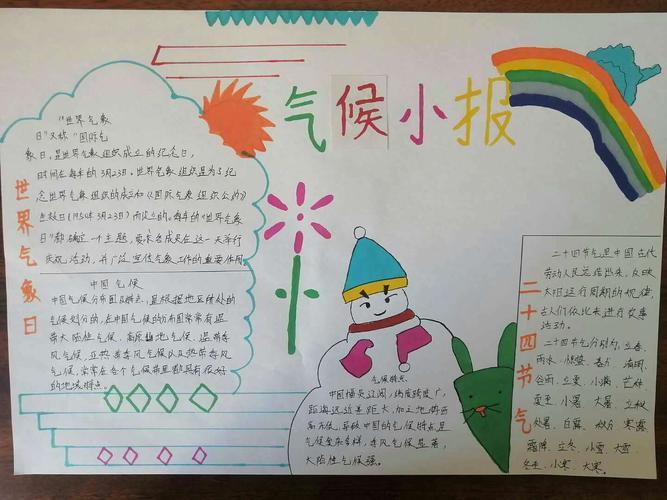 气候小报
世界气象日
"世界气象
日"又称"国际气
象日,是世界气象组织成立的纪念日,
时间在每年的3月23日。世界气象组织是为了纪
念世界气象组织的成立和《国际气象组织公约》
生效日(1950年3月23日)而设立的。每年的"世界气象
日"都确定一个主题,要求各成员在这一天举行
庆祝活动,并广泛宣传气象工作的重要作用
中国气候
中国气候分布图及特点,是根据地区特处的
气候划分的,在中国气候的分布图常常有温
带大陆性气候、高原山地气候、温带季
风气候、亚热带季风气候以及热带季风
气候,常常在各个气候带里都具有很好
的地域特点。
气候特点
中国幅员辽阔,纬度跨度广,
距海远近差距大,加之地势西
高东低,导致中国的气候特点是
气候复杂多样,季风气候显著,
大陆性气候强。
二十四节气
二十四节气是中国古代
劳动人民总结出来,反映
太阳运行周期的规律,
古人们依此来进行农事
活动。
二十四节气分别为,立春、
雨水、惊蛰、春分、清明、
谷雨、立夏、小满、芒种、
夏至、小暑、大暑、立秋
处暑、白露、秋分、寒露、
霜降、立冬、小雪、大雪、
冬至、小寒、大寒。